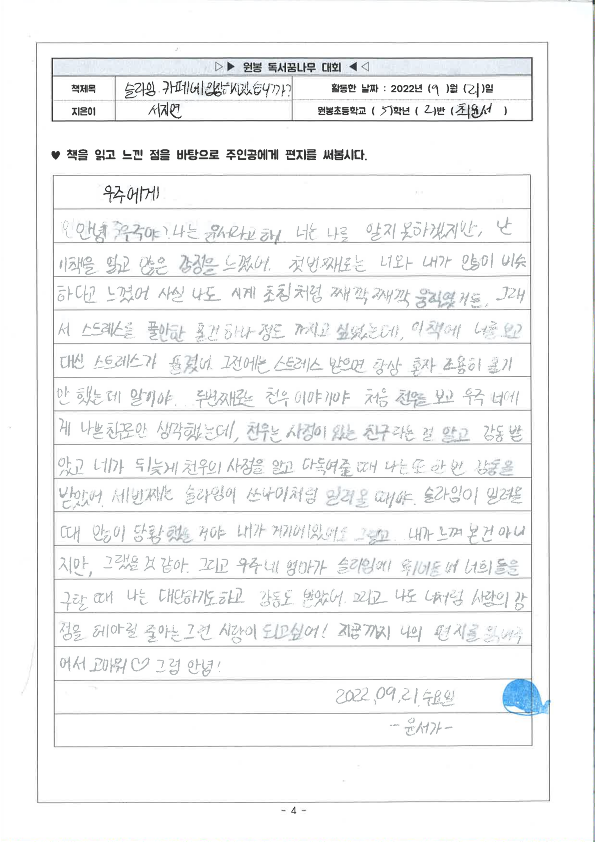 ▷▶ 원봉 독서꿈나무 대회 ◀◁
책제목 슬라임 카페에 입장하시겠습니까? 활동한 날짜 : 2022년 (9)월 (21)일
지은이 서지연 원봉초등학교 ( 5)학년 ( 2)반 (최윤서 )
♥ 책을 읽고 느낀 점을 바탕으로 주인공에게 편지를 써봅시다.
우주에게
안녕 우주야? 나는 윤서라고 해. 너는 나를 알지 못하겠지만, 난
이책을 읽고 많은 감정을 느꼈어. 첫번째로는 너와 내가 많이 비슷
하다고 느꼈어 사실 나도 시계 초침처럼 째깍 째깍 움직였거든, 그래
서 스트레스를 풀만한 물건 하나 정도 가지고 싶었는데, 이 책에 너를 보고
대신 스트레스가 풀렸어. 그전에는 스트레스 받으면 항상 혼자 조용히 울기
만 했는데 말이야. 두번째로는 천우 이야기야 처음 천우를 보고 우주 너에
게 나쁜친구로만 생각했는데, 천우는 사정이 있는 친구라는 걸 알고 감동 받
았고 네가 뒤늦게 천우의 사정을 알고 다독여줄 때 나는 또 한 번 감동을
받았어. 세번째는 슬라임이 쓰나미처럼 밀려올 때야. 슬라임이 밀려올
때 많이 당황했을 거야 내가 거기에 있어도 그렇고. 내가 느껴 본건 아니
지만, 그랬을 것 같아. 그리고 우주네 엄마가 슬라임에 뛰어들며 너희들을
구할 때 나는 대단하기도하고 감동도 받았어. 그리고 나도 너처럼 사람의 감
정을 헤아릴 줄아는 그런 사람이 되고싶어! 지금까지 나의 편지를 읽어주
어서 고마워♡ 그럼 안녕!
2022.09.21.수요일
-윤서가-
- 4 -